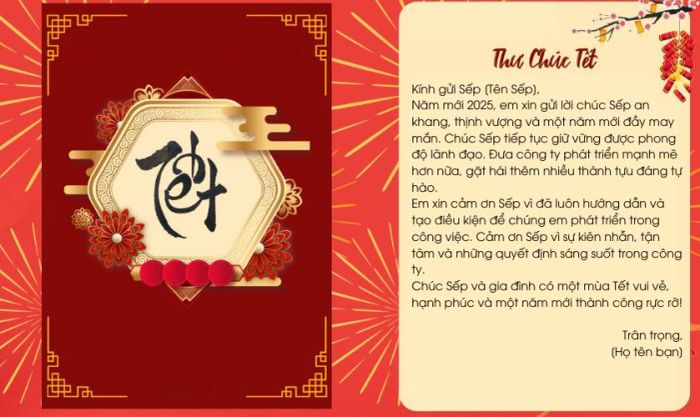 Tết
Thư Chúc Tết
Kính gửi Sếp (Tên Sếp),
Năm mới 2025, em xin gửi lời chúc Sếp an
khang, thịnh vượng và một năm mới đầy may
mắn. Chúc Sếp tiếp tục giữ vững được phong
độ lãnh đạo. Đưa công ty phát triển mạnh mẽ
hơn nữa, gặt hái thêm nhiều thành tựu đáng tự
hào.
Em xin cảm ơn Sếp vì đã luôn hướng dẫn và
tạo điều kiện để chúng em phát triển trong
công việc. Cảm ơn Sếp vì sự kiên nhẫn, tận
tâm và những quyết định sáng suốt trong công
ty.
Chúc Sếp và gia đình có một mùa Tết vui vẻ,
hạnh phúc và một năm mới thành công rực rỡ!
Trân trọng,
(Họ tên bạn)